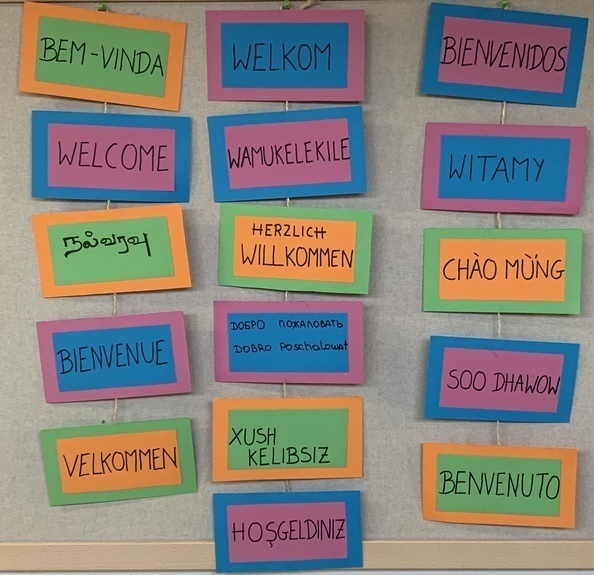 BEM-VINDA
WELCOME
நல்வரவு
BIENVENUE
VELKOMMEN
WELKOM
WAMUKELEKILE
HERZLICH
WILLKOMMEN
ДОБРО ПОЖАЛОВАТЬ
DOBRO Poschalowat
XUSH
KELIBSIZ
HOŞGELDINIZ
BIENVENIDOS
WITAMY
CHÀO MỪNG
SOO DHAWOW
BENVENUTO